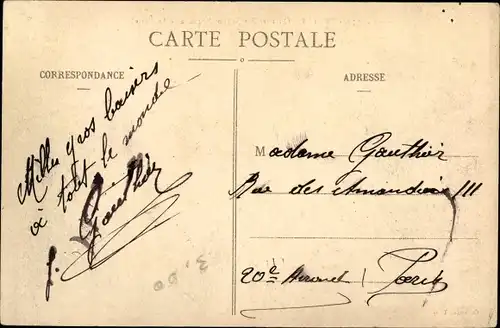 CARTE POSTALE
CORRESPONDANCE
ADRESSE
Mille gros baisers
à tout le monde
J. Gauthier
Madame Gauthier
Rue des Amandiers 111
20e Arrond Paris